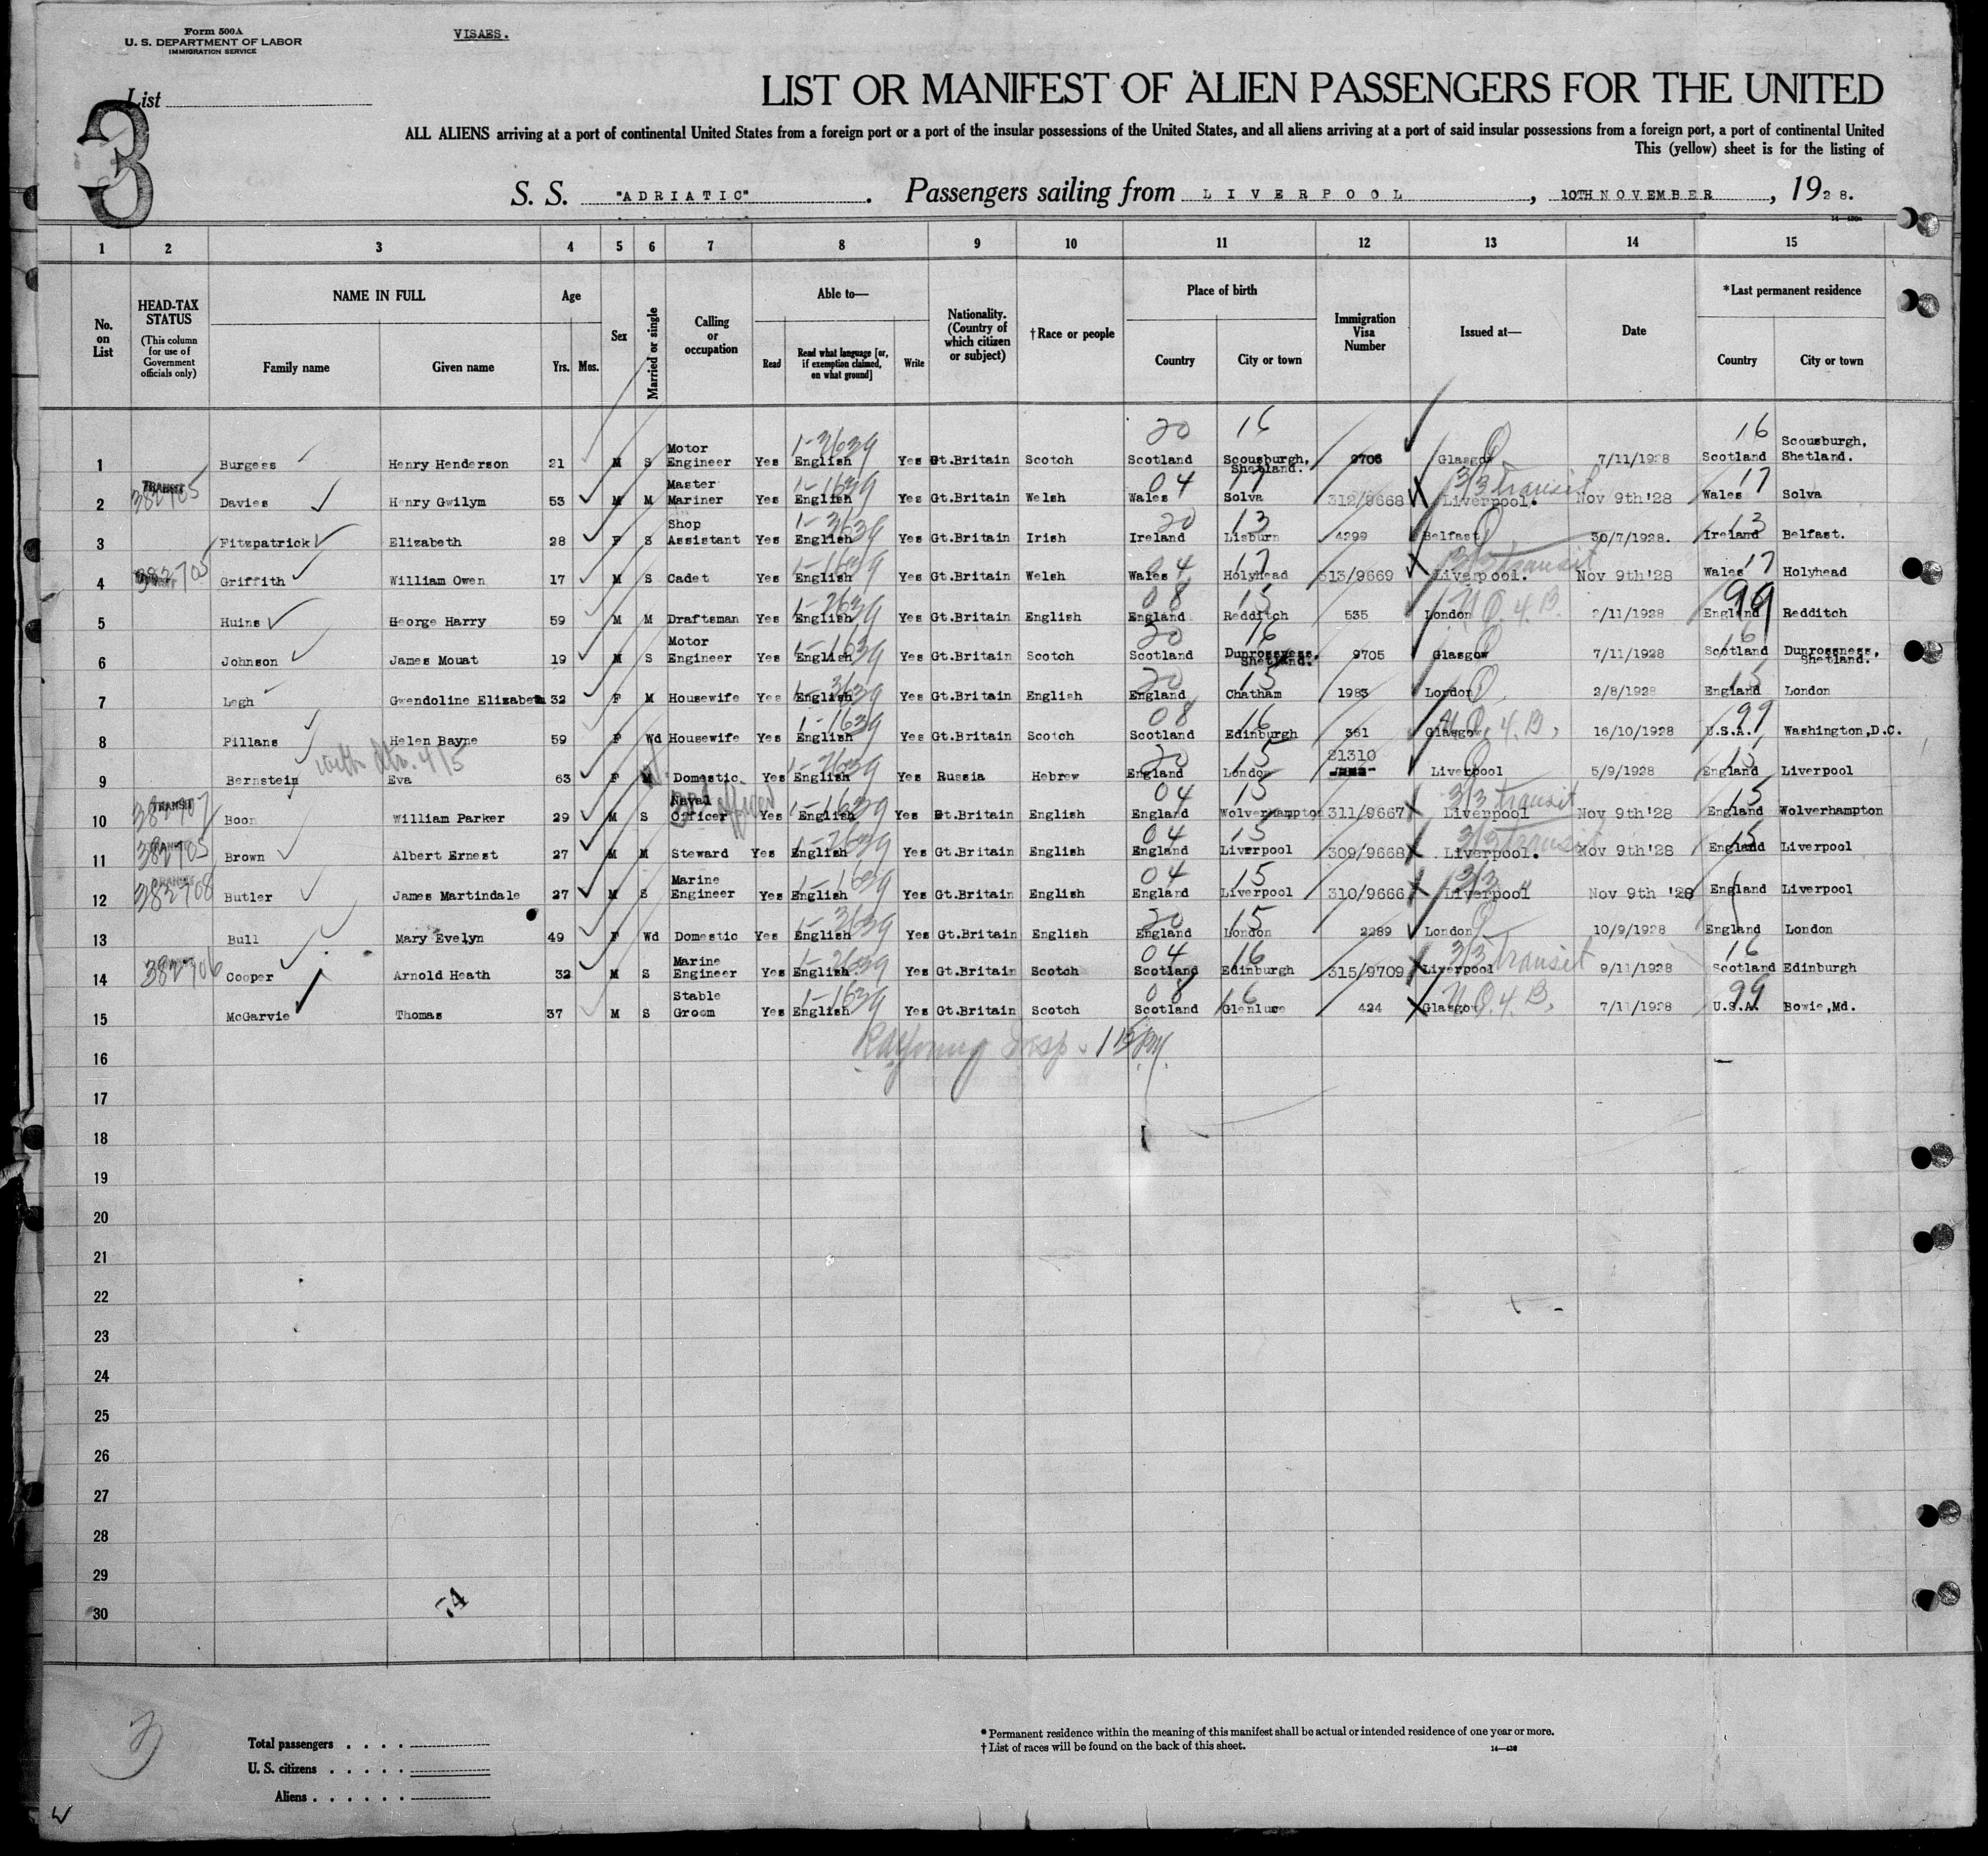 Form 500A
U. S. DEPARTMENT OF LABOR
IMMIGRATION SERVICE
VISAES.
List
3
LIST OR MANIFEST OF ALIEN PASSENGERS FOR THE UNITED
ALL ALIENS arriving at a port of continental United States from a foreign port or a port of the insular possessions of the United States, and all aliens arriving at a port of said insular possessions from a foreign port, a port of continental United
This (yellow) sheet is for the listing of
S. S. "ADRIATIC". Passengers sailing from LIVERPOOL, 10TH NOVEMBER, 1928.
1 2 3 4 5 6 7 8 9 10 11 12 13 14 15
No. on List
HEAD-TAX STATUS
(This column for use of Government officials only)
NAME IN FULL
Family name
Given name
Age
Yrs.
Mos.
Sex
Married or single
Calling or occupation
Able to—
Read
Read what language [or, if exemption claimed, on what ground]
Write
Nationality. (Country of which citizen or subject)
†Race or people
Place of birth
Country
City or town
Immigration Visa Number
Issued at—
Date
*Last permanent residence
Country
City or town
1 Burgess Henry Henderson 21 M S Motor Engineer Yes English Yes Gt.Britain Scotch Scotland Scousburgh, Shetland. 9706 Glasgow 7/11/1928 Scotland Scousburgh, Shetland.
2 TRANSIT 382705 Davies Henry Gwilym 53 M M Master Mariner Yes English Yes Gt.Britain Welsh Wales Solva 312/9668 Liverpool. 3/3 transit Nov 9th'28 Wales Solva
3 Fitzpatrick Elizabeth 28 F S Shop Assistant Yes English Yes Gt.Britain Irish Ireland Lisburn 4299 Belfast 30/7/1928. Ireland Belfast.
4 382705 Griffith William Owen 17 M S Cadet Yes English Yes Gt.Britain Welsh Wales Holyhead 313/9669 Liverpool. 3/3 transit Nov 9th'28 Wales Holyhead
5 Huins George Harry 59 M M Draftsman Yes English Yes Gt.Britain English England Redditch 535 London 2/11/1928 England 99 Redditch
6 Johnson James Mouat 19 M S Motor Engineer Yes English Yes Gt.Britain Scotch Scotland Dunrossness, Shetland. 9705 Glasgow 7/11/1928 Scotland Dunrossness, Shetland.
7 Legh Gwendoline Elizabeth 32 F M Housewife Yes English Yes Gt.Britain English England Chatham 1983 London 2/8/1928 England London
8 Pillans Helen Bayne 59 F Wd Housewife Yes English Yes Gt.Britain Scotch Scotland Edinburgh 361 Glasgow 16/10/1928 U.S.A. Washington,D.C.
9 Bernstein Eva 63 F Domestic Yes English Yes Russia Hebrew England London 21310 Liverpool 5/9/1928 England Liverpool
10 TRANSIT 382707 Boon William Parker 29 M S Naval Officer Yes English Yes Gt.Britain English England Wolverhampton 311/9667 Liverpool 3/3 transit Nov 9th'28 England Wolverhampton
11 382705 Brown Albert Ernest 27 M M Steward Yes English Yes Gt.Britain English England Liverpool 309/9668 Liverpool. 3/3 transit Nov 9th'28 England Liverpool
12 382708 Butler James Martindale 27 M S Marine Engineer Yes English Yes Gt.Britain English England Liverpool 310/9666 Liverpool 3/3 Nov 9th '28 England Liverpool
13 Bull Mary Evelyn 49 F Wd Domestic Yes English Yes Gt.Britain English England London 2289 London 10/9/1928 England London
14 382706 Cooper Arnold Heath 32 M S Marine Engineer Yes English Yes Gt.Britain Scotch Scotland Edinburgh 315/9709 Liverpool 3/3 transit 9/11/1928 Scotland Edinburgh
15 McGarvie Thomas 37 M S Stable Groom Yes English Yes Gt.Britain Scotch Scotland Glenluce 424 Glasgow 7/11/1928 U.S.A. 99 Bowie,Md.
16
17
18
19
20
21
22
23
24
25
26
27
28
29
30
74
3
Total passengers . . . .
U. S. citizens . . . . .
Aliens . . . . . .
* Permanent residence within the meaning of this manifest shall be actual or intended residence of one year or more.
† List of races will be found on the back of this sheet.